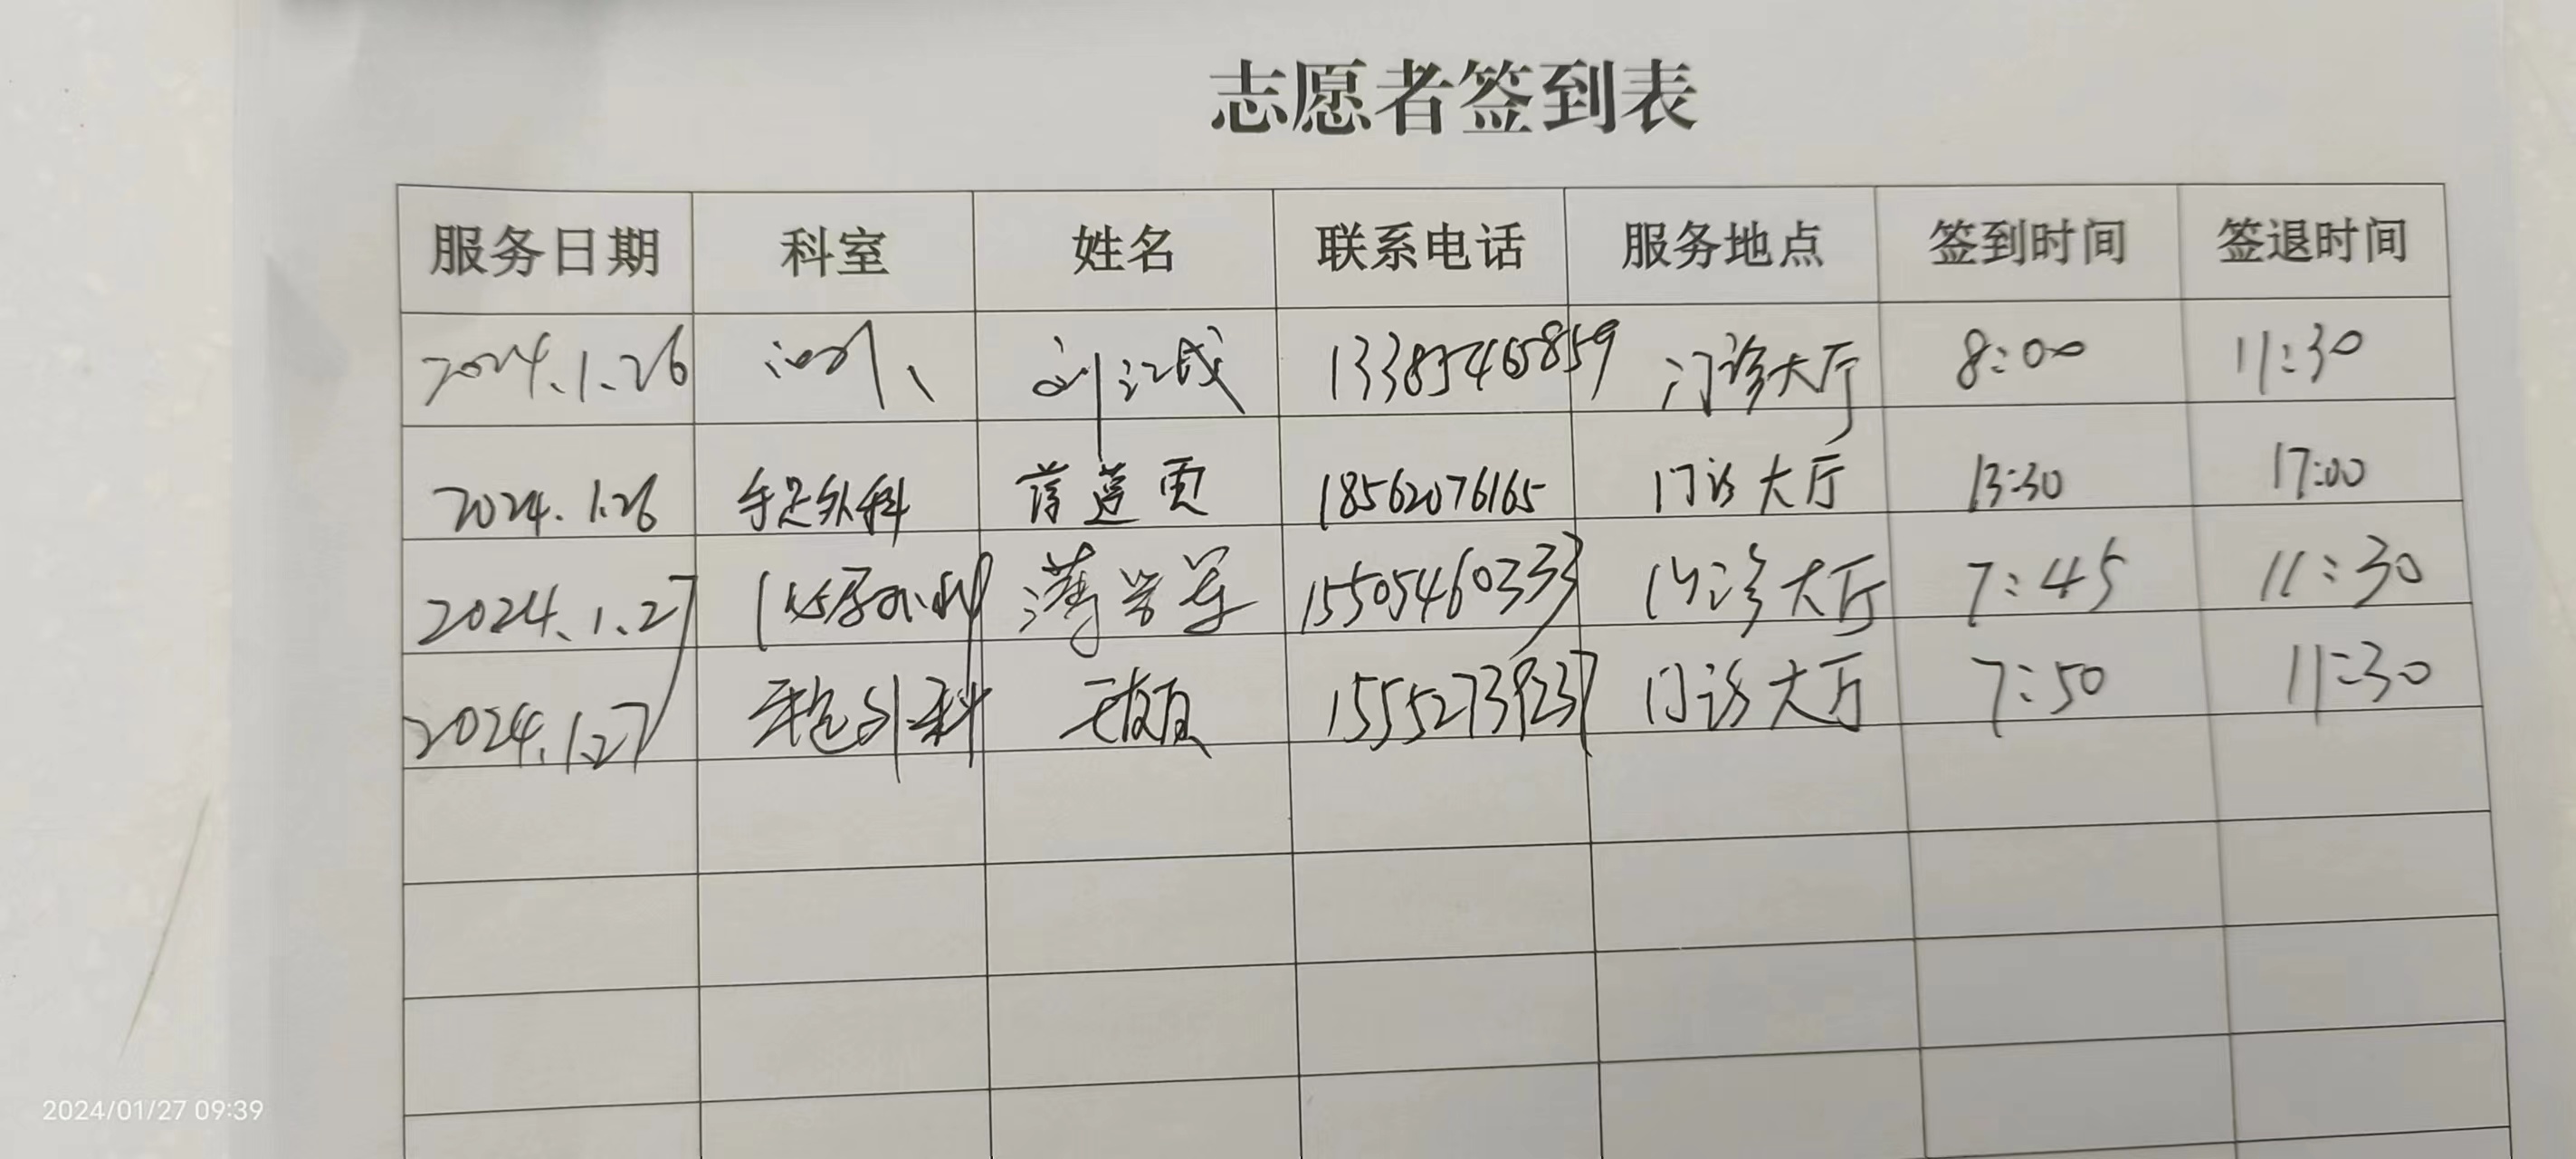 志愿者签到表
服务日期 科室 姓名 联系电话 服务地点 签到时间 签退时间
2024.1.26 泌外、 刘江成 13385465859 门诊大厅 8:00 11:30
2024.1.26 手足外科 18562076165 门诊大厅 13:30 17:00
2024.1.27 15505460333 门诊大厅 7:45 11:30
2024.1.27 外科 15552739237 门诊大厅 7:50 11:30
2024/01/27 09:39